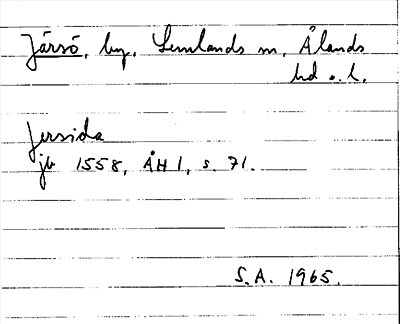 Järsö, by, Lemlands sn, Ålands
hd o. l.
Jersida
jb 1558, ÅH 1, s. 71.
S.A. 1965.